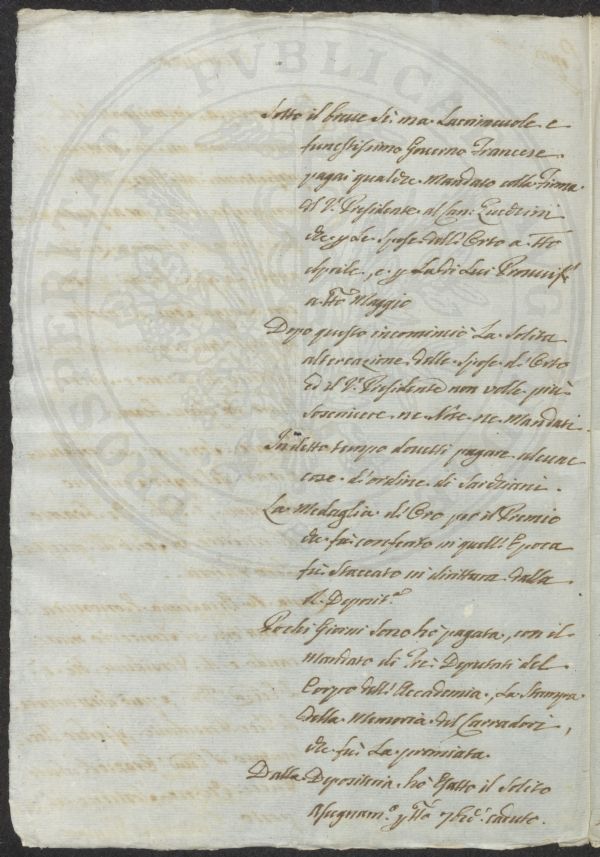 PROSPERITATI PVBLICAE
Sotto il breve sì, ma Lacrimevole e
funestissimo Governo Francese
pagai qualche Mandato colla Firma
del S.r Presidente al Can.
che p Le Spese dell'Orto a tto
Aprile, e p
a tto Maggio
Dopo questo incominciò La Solita
altercazione delle Spese d'Orto
ed il S.r Presidente non volle più
soscrivere ne Note ne Mandati.
In detto tempo dovetti pagare alcune
cose d'ordine di Sarchiani.
La Medaglia di Oro per il Premio
che fù conferito in quell'Epoca
fù staccata in dirittura dalla
R. Deposit.a
Pochi Giorni sono hò pagata, con il
Mandato di Tre Deputati del
Corpo dell'Accademia, La Stampa
della Memoria del Carradori,
che fù La premiata.
Dalla Depositeria hò Esatto il Solito
Assegnam.o p tto 7bre caduto.